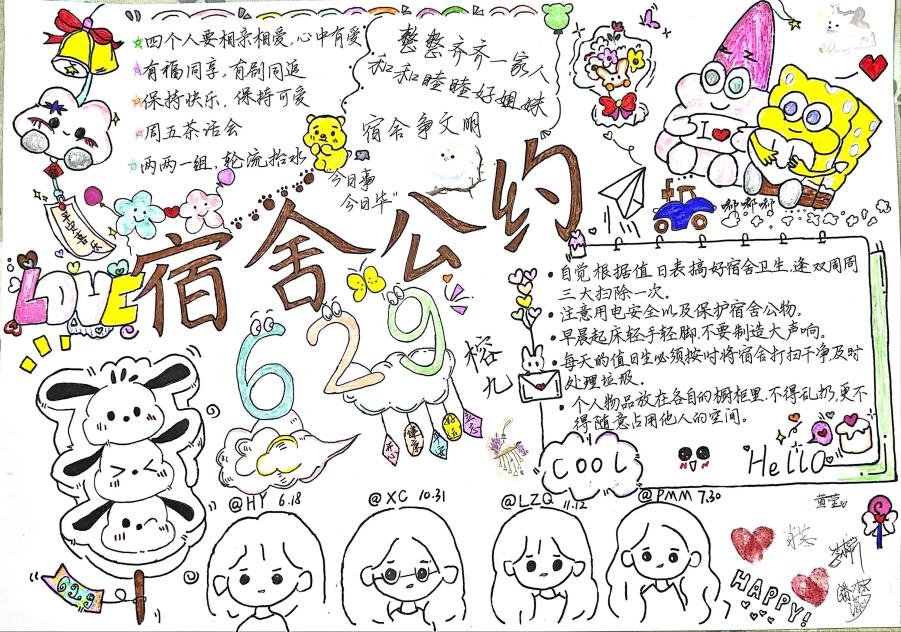 四个人要相亲相爱,心中有爱
有福同享,有剧同追
保持快乐,保持可爱
周五茶话会
两两一组,轮流抬水
整整齐齐一家人
和和睦睦好姐妹
宿舍争文明
今日事
今日毕"
I
嘟嘟嘟
宿舍公约
LOVE
629
榕九
自觉根据值日表搞好宿舍卫生,逢双周周
三大扫除一次。
注意用电安全以及保护宿舍公物。
早晨起床轻手轻脚,不要制造大声响。
每天的值日生必须按时将宿舍打扫干净及时
处理垃圾。
个人物品放在各自的橱柜里,不得乱扔,更不
得随意占用他人的空间。
COOL
Hello
@HY 6.18
@XC 10.31
@LZQ 11.12
@PMM 7.30
HAPPY!